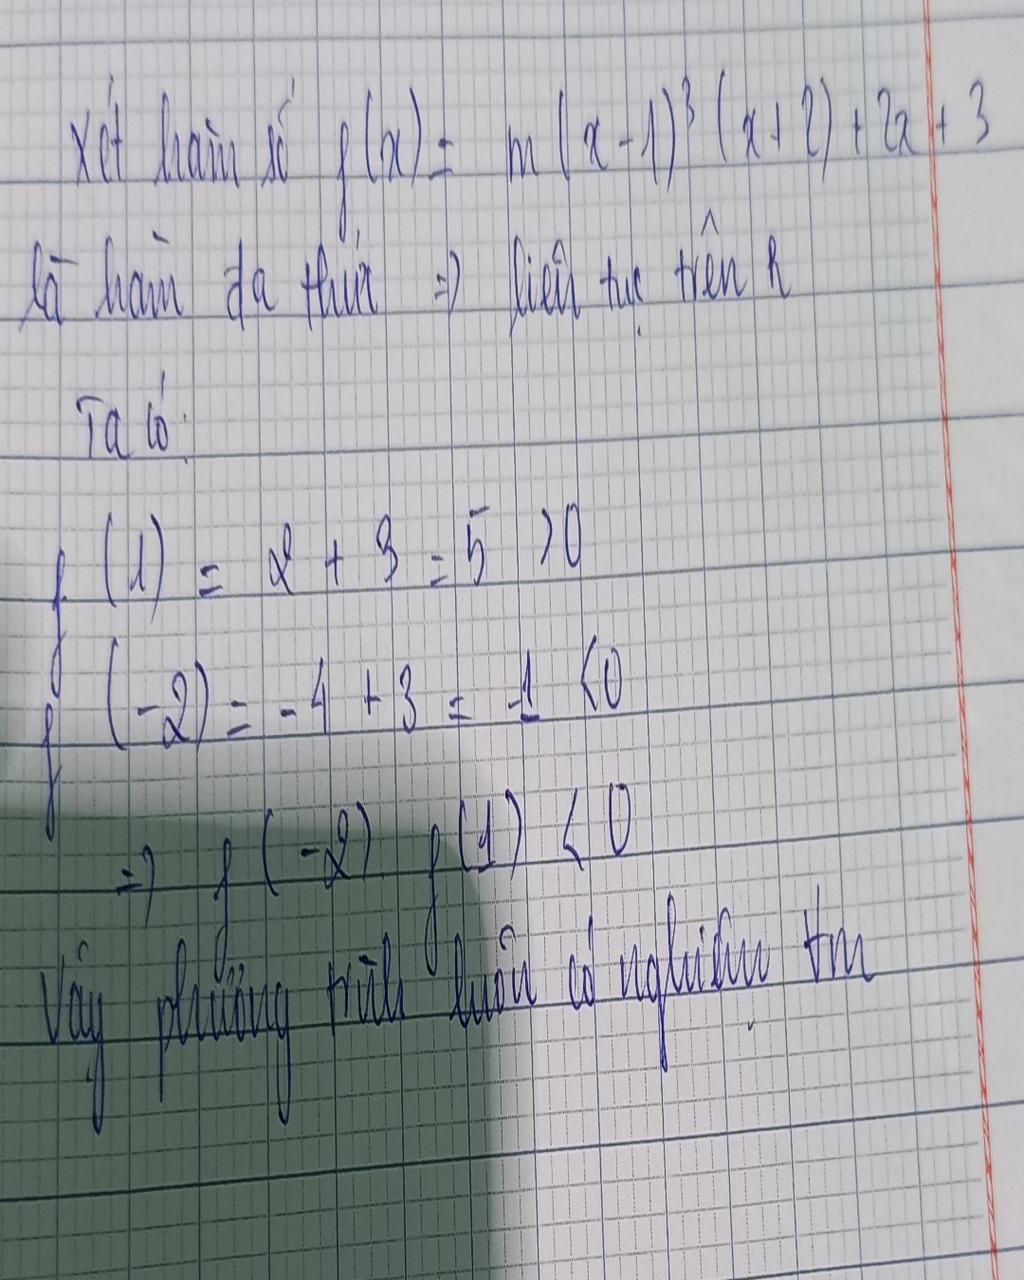 Xét hàm số f(x) = m(x-1)³(x+2)+2x+3
là hàm đa thức => liên tục trên R
Ta có:
f(1) = 2 + 3 = 5 >0
f(-2) = -4 + 3 = -1 <0
=> f(-2) f(1) < 0
Vậy phương trình luôn có nghiệm ∀m